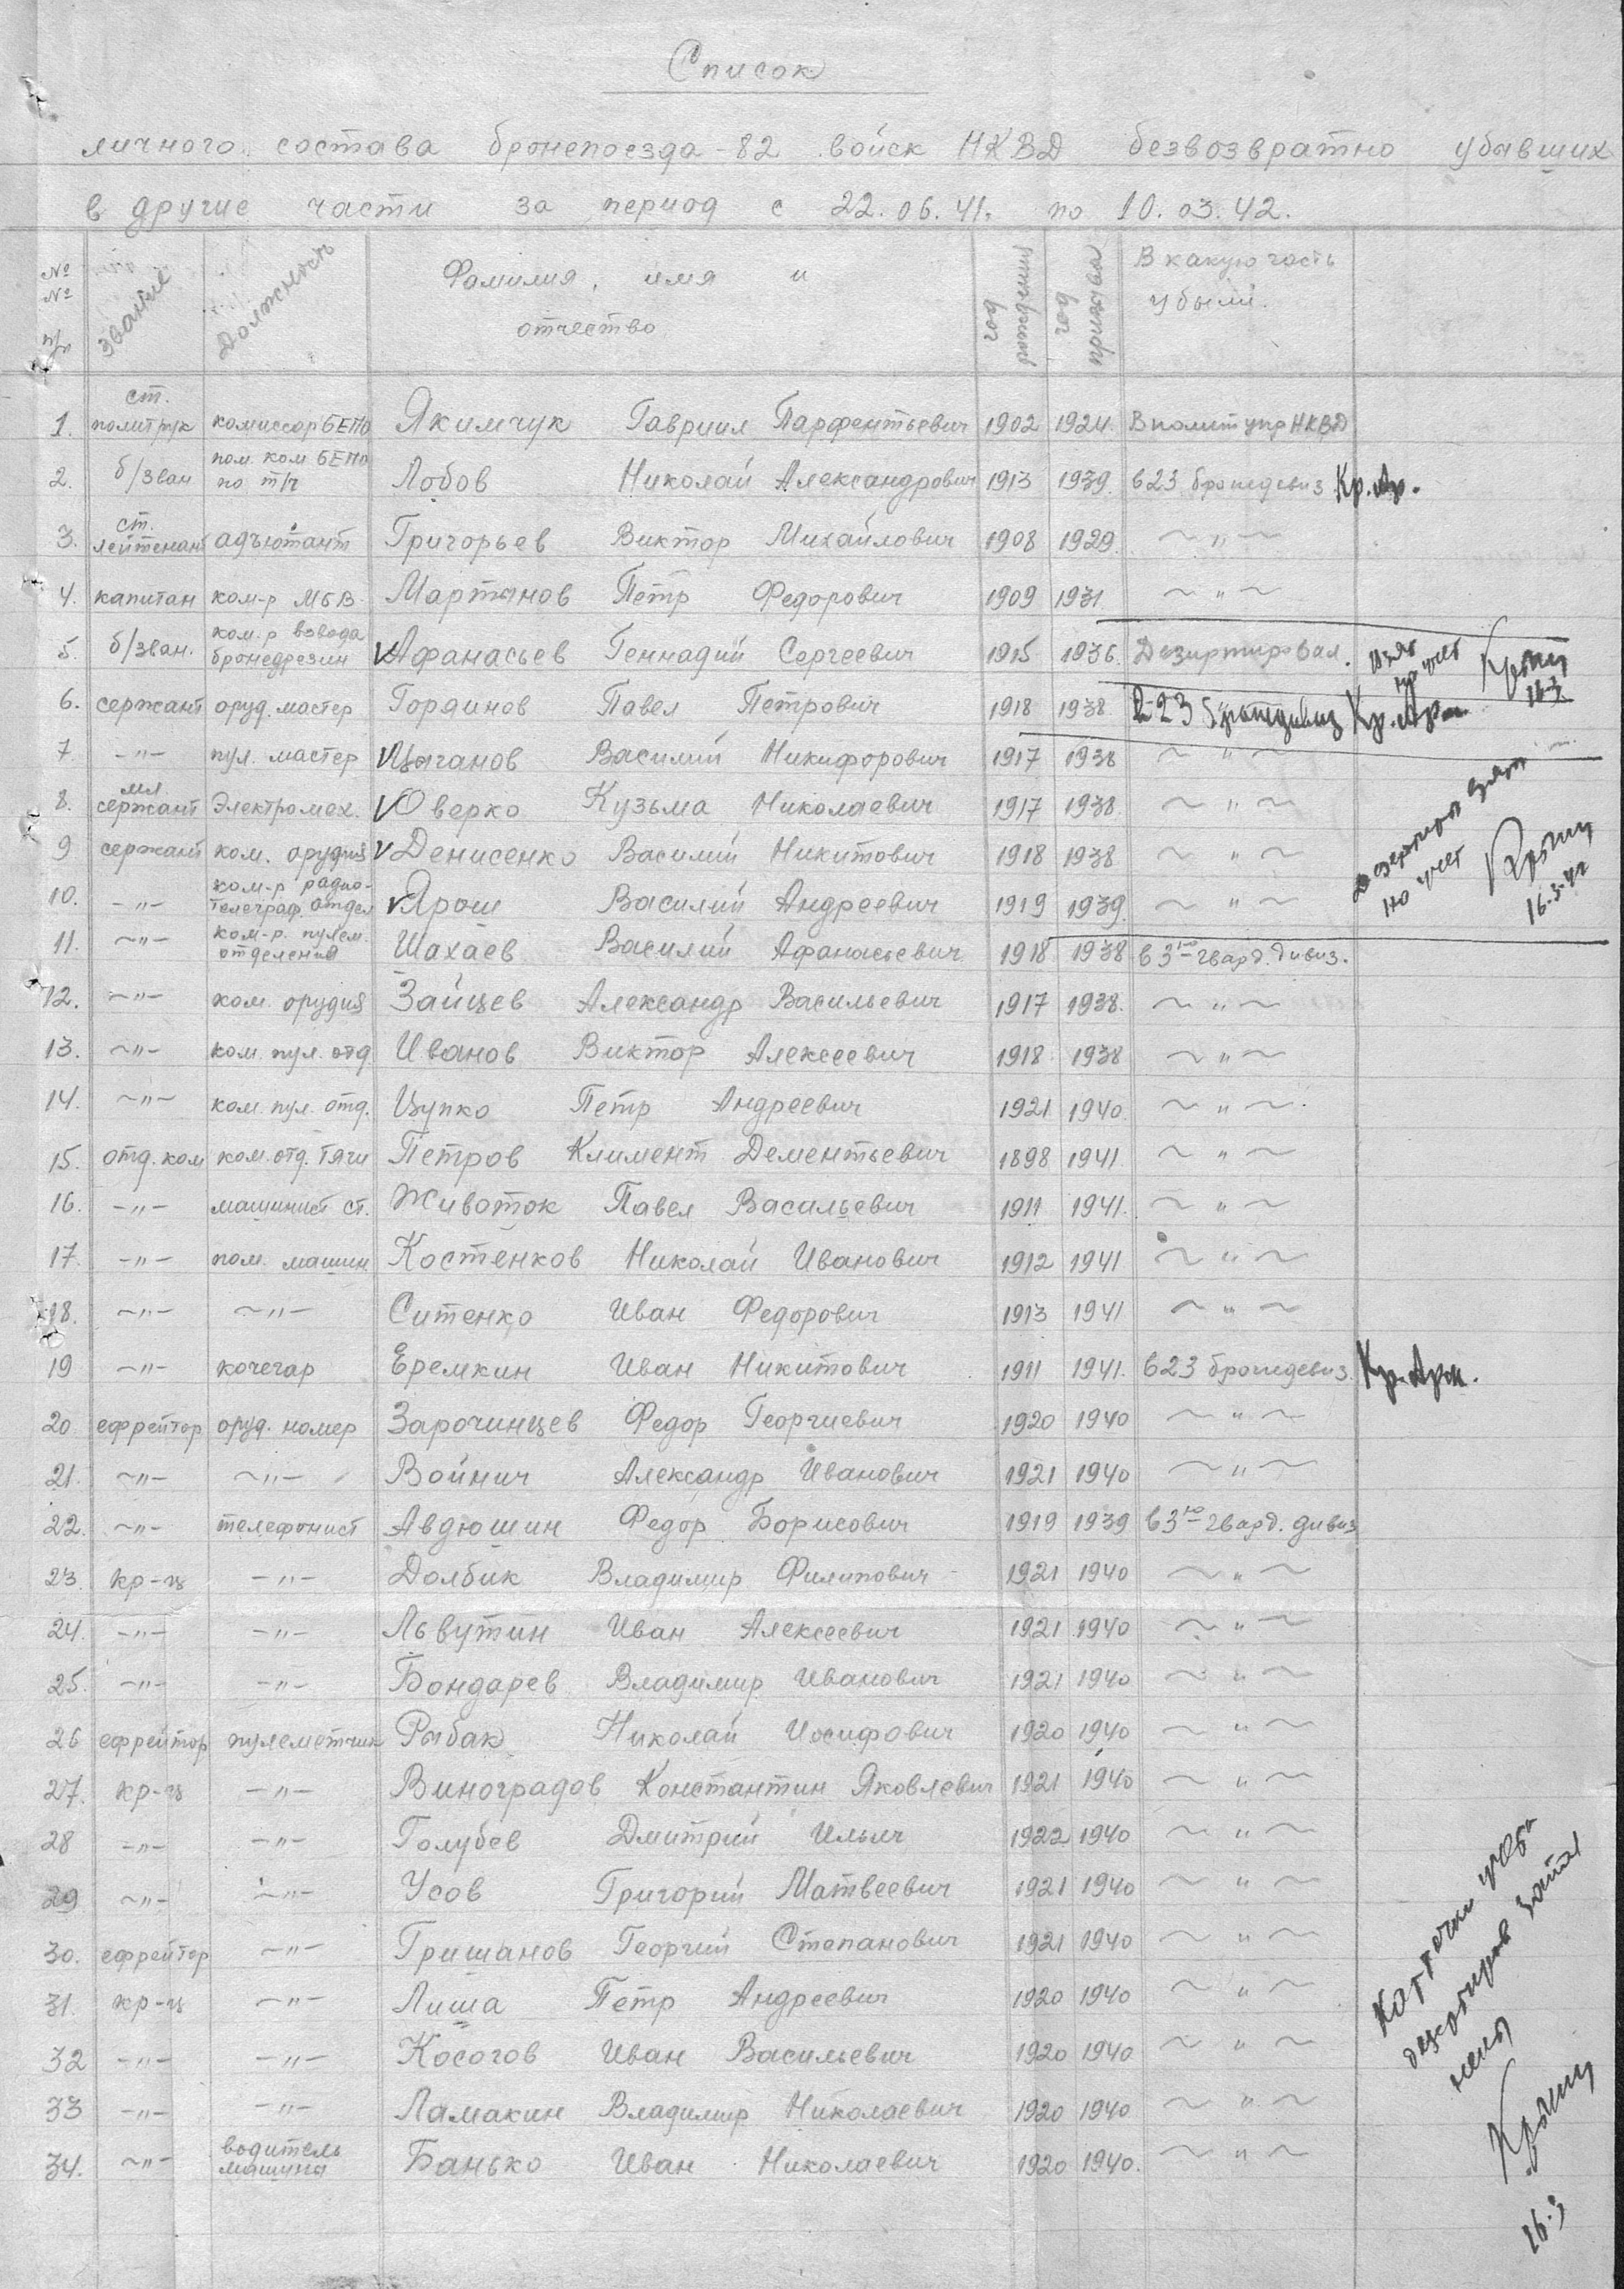 Список
личного состава бронепоезда-82 войск НКВД безвозвратно убывших
в другие части за период с 22.06.41. по 10.03.42.
№ № п/п звание Должность Фамилия, имя и отчество год рождения год призыва В какую часть убыли.
1. ст. политрук комиссар БЕПО Якимчук Гавриил Парфентьевич 1902 1924. В политупр НКВД
2. б/зван пом. ком БЕПО по т/ч Лобов Николай Александрович 1913 1939. в 23 бронедевиз Кр. Ар.
3. ст. лейтенант адъютант Григорьев Виктор Михайлович 1908 1929. ~ " ~
4. капитан ком-р МБВ Мартынов Петр Федорович 1909 1931. ~ " ~
5. б/зван. ком.р взвода бронедрезин V Афанасьев Геннадий Сергеевич 1915 1936. Дезиртировал. взят на учет 16.3
6. сержант оруд. мастер Горяинов Павел Петрович 1918 1938 в 23 бронедивиз Кр. Арм.
7. -"- пул. мастер V Цыганов Василий Никифорович 1917 1938 ~ " ~
8. мл сержант Электромех. V Оверко Кузьма Николаевич 1917 1938. ~ " ~
9 сержант ком. орудия V Денисенко Василий Никитович 1918 1938 ~ " ~
10. -"- ком-р радио-телеграф. отдел V Ярош Василий Андреевич 1919 1939. ~ " ~
взят на учет
16.3.42
11. ~"- ком-р. пулем. отделения Шахаев Василий Афанасьевич 1918 1938 в 3ю гвард. дивиз.
12. ~"- ком. орудия Зайцев Александр Васильевич 1917 1938. ~ " ~
13. ~"- ком. пул. отд. Иванов Виктор Алексеевич 1918 1938 ~ " ~
14. ~"- ком. пул. отд. Цупко Петр Андреевич 1921 1940. ~ " ~
15. отд. ком ком. отд. тяги Петров Климент Дементьевич 1898 1941. ~ " ~
16. -"- машинист ст. Животок Павел Васильевич 1911 1941. ~ " ~
17. -"- пом. машин Костенков Николай Иванович 1912 1941 ~ " ~
18. ~"- ~"- Ситенко Иван Федорович 1913 1941 ~ " ~
19 ~"- кочегар Еремкин Иван Никитович 1911 1941. в 23 бронедевиз. Кр. Арм.
20 ефрейтор оруд. номер Зарочинцев Федор Георгиевич 1920 1940 ~ " ~
21. ~"- ~"- Войнич Александр Иванович 1921 1940 ~ " ~
22. ~"- телефонист Авдюшин Федор Борисович 1919 1939 в 3ю гвард. дивиз
23. кр-ц -"- Долбик Владимир Филипович 1921 1940 ~ " ~
24. -"- -"- Львутин Иван Алексеевич 1921 1940 ~ " ~
25. -"- -"- Бондарев Владимир Иванович 1921 1940 ~ " ~
26 ефрейтор пулеметчик Рыбак Николай Иосифович 1920 1940 ~ " ~
27. кр-ц -"- Виноградов Константин Яковлевич 1921 1940 ~ " ~
28 -"- -"- Голубев Дмитрий Ильич 1922 1940 ~ " ~
29 ~"- -"- Усов Григорий Матвеевич 1921 1940 ~ " ~
30. ефрейтор ~"- Гришанов Георгий Степанович 1921 1940 ~ " ~
31. кр-ц ~"- Лиша Петр Андреевич 1920 1940 ~ " ~
32 -"- -"- Косогов Иван Васильевич 1920 1940 ~ " ~
33 -"- -"- Ламакин Владимир Николаевич 1920 1940 ~ " ~
34. ~"- водитель машины Банько Иван Николаевич 1920 1940. ~ " ~
Карточки учета
16.3